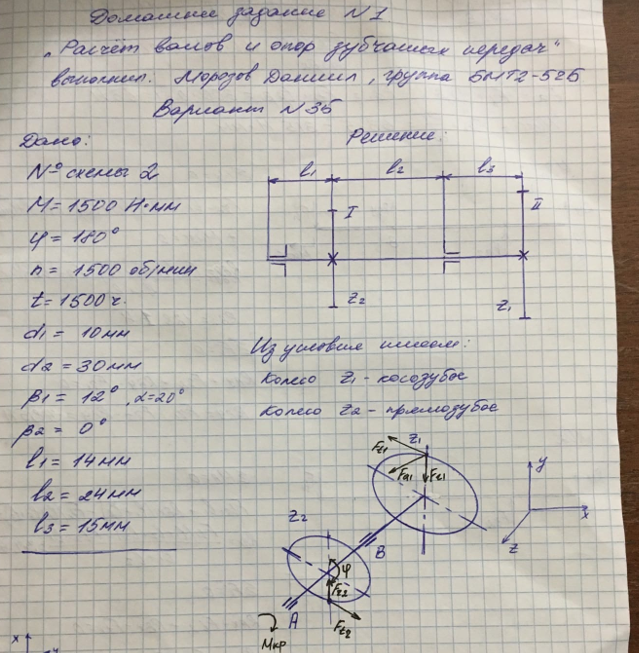 Домашнее задание №1
„Расчёт валов и опор зубчатых передач"
выполнил: Морозов Даниил, группа БМТ2-52Б
Вариант №35
Дано:
Решение:
№ схемы 2
M = 1500 Н·мм
φ = 180°
n = 1500 об/мин
t = 1500 ч.
d1 = 10 мм
d2 = 30 мм
β1 = 12°, α=20°
β2 = 0°
l1 = 14 мм
l2 = 24 мм
l3 = 15 мм
l1 l2 l3
I II
z2 z1
Из условия имеем:
Колесо z1 - косозубое
Колесо z2 - прямозубое
z1
Fa1
Fr1
y
x
z
z2
B
φ
Fr2
A
Ft2
Mкр
x